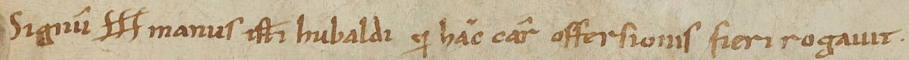 Signū manus isti hubaldi qi hāc car offersionis fieri rogavit.